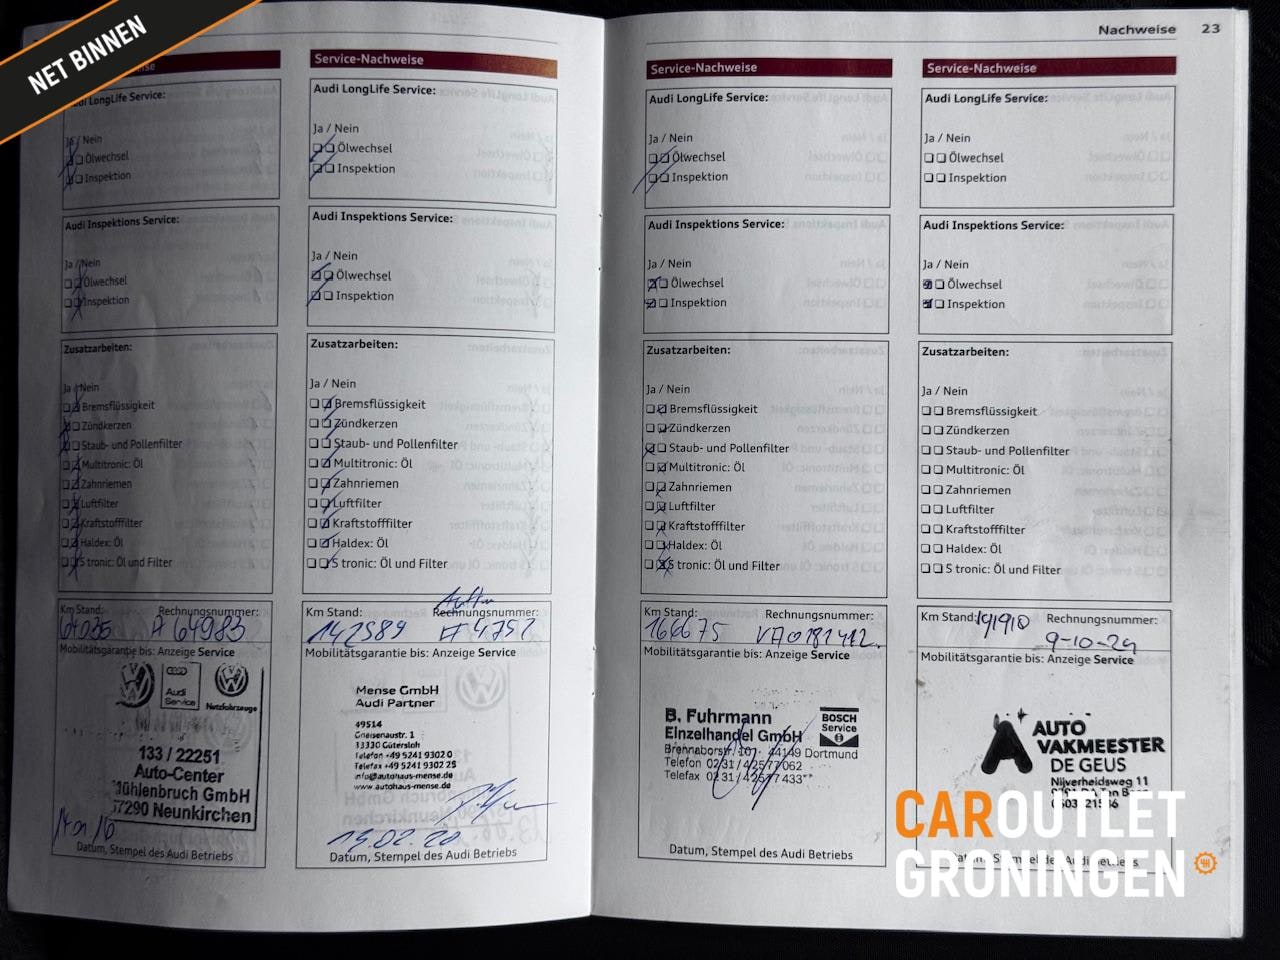 NET BINNEN
Nachweise 23
LongLife Service:
Ja / Nein
Ölwechsel
Inspektion
Audi Inspektions Service:
Ja / Nein
Ölwechsel
Inspektion
Zusatzarbeiten:
Ja / Nein
Bremsflüssigkeit
Zündkerzen
Staub- und Pollenfilter
Multitronic: Öl
Zahnriemen
Luftfilter
Kraftstofffilter
Haldex: Öl
S tronic: Öl und Filter
Km Stand: Rechnungsnummer:
64035 # 64983
Mobilitätsgarantie bis: Anzeige Service
Audi
Service
Nutzfahrzeuge
133 / 22251
Auto-Center
Mühlenbruch GmbH
57290 Neunkirchen
Datum, Stempel des Audi Betriebs
Service-Nachweise
Audi LongLife Service:
Ja / Nein
Ölwechsel
Inspektion
Audi Inspektions Service:
Ja / Nein
Ölwechsel
Inspektion
Zusatzarbeiten:
Ja / Nein
Bremsflüssigkeit
Zündkerzen
Staub- und Pollenfilter
Multitronic: Öl
Zahnriemen
Luftfilter
Kraftstofffilter
Haldex: Öl
S tronic: Öl und Filter
Km Stand: Rechnungsnummer:
142589
Mobilitätsgarantie bis: Anzeige Service
Mense GmbH
Audi Partner
49514
Gneisenaustr. 1
33330 Gütersloh
Telefon +49 5241 9302 0
Telefax +49 5241 9302 25
info@autohaus-mense.de
www.autohaus-mense.de
Datum, Stempel des Audi Betriebs
Service-Nachweise
Audi LongLife Service:
Ja / Nein
Ölwechsel
Inspektion
Audi Inspektions Service:
Ja / Nein
Ölwechsel
Inspektion
Zusatzarbeiten:
Ja / Nein
Bremsflüssigkeit
Zündkerzen
Staub- und Pollenfilter
Multitronic: Öl
Zahnriemen
Luftfilter
Kraftstofffilter
Haldex: Öl
S tronic: Öl und Filter
Km Stand: Rechnungsnummer:
166675
Mobilitätsgarantie bis: Anzeige Service
B. Fuhrmann
Einzelhandel GmbH
BOSCH
Service
44149 Dortmund
Telefon 0231/42577062
Telefax 0231/42577433
Datum, Stempel des Audi Betriebs
Service-Nachweise
Audi LongLife Service:
Ja / Nein
Ölwechsel
Inspektion
Audi Inspektions Service:
Ja / Nein
Ölwechsel
Inspektion
Zusatzarbeiten:
Ja / Nein
Bremsflüssigkeit
Zündkerzen
Staub- und Pollenfilter
Multitronic: Öl
Zahnriemen
Luftfilter
Kraftstofffilter
Haldex: Öl
S tronic: Öl und Filter
Km Stand: Rechnungsnummer:
9-10-24
Mobilitätsgarantie bis: Anzeige Service
AUTO
VAKMEESTER
DE GEUS
Nijverheidsweg 11
CAROUTLET
GRONINGEN